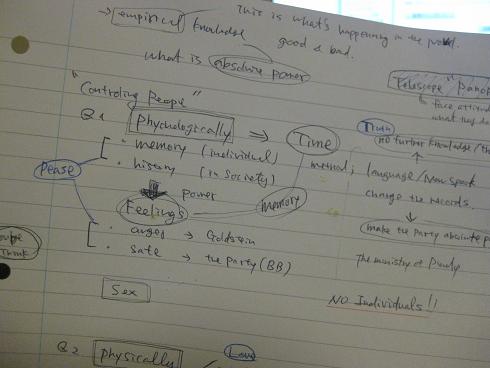 → empirical knowledge
This is what's happening in the
good & bad.
what is absolute power
"Controling People"
"Telescope" Panop
face
what they do
Q1 Phychologically ⇒ Time
· memory (individual)
· history (in society)
Truth
no further knowledge / th
method; language / New speak
change the records.
Power
Feelings
memory
· anger → Goldstein
· safe → the party (BB)
make the party absolute p
The ministry of
Think
Sex
NO Individuals!!
Q2 physically
Love